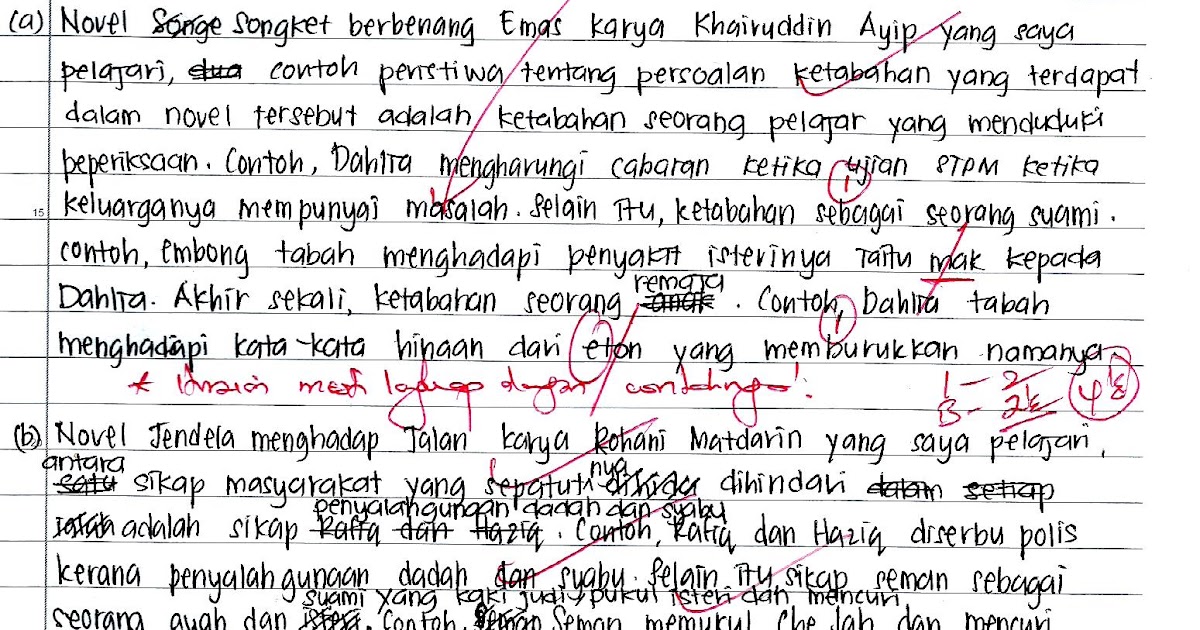 (a) Novel Songe Songket berbenang Emas karya Khairuddin Ayip yang saya
pelajari, dua contoh peristiwa tentang persoalan ketabahan yang terdapat
dalam novel tersebut adalah ketabahan seorang pelajar yang menduduki
peperiksaan. Contoh, Dahlia mengharungi cabaran ketika ujian STPM ketika
15 keluarganya mempunyai masalah. Selain itu, ketabahan sebagai seorang suami.
contoh, Embong tabah menghadapi penyakit isterinya iaitu mak kepada
remaja
Dahlia. Akhir sekali, ketabahan seorang anak. Contoh, Dahlia tabah
menghadapi kata-kata hinaan dari eton yang memburukkan namanya.
* mesti lengkap dengan contohnya!
1 - 2
B - 2½ 4½
(b) Novel Jendela menghadap Jalan karya Rohani Matdarin yang saya pelajari,
antara nya
satu sikap masyarakat yang sepatut dihinda dihindari dalam setiap
penyalahgunaan dadah dan syabu
adalah sikap Rafiq dan Haziq. Contoh, Rafiq dan Haziq diserbu polis
kerana penyalahgunaan dadah dan syabu. Selain itu sikap seman sebagai
suami yang kaki judi, pukul isteri dan mencuri
seorang ayah dan isteri. Contoh, Seman Seman memukul Che Jah dan mencuri